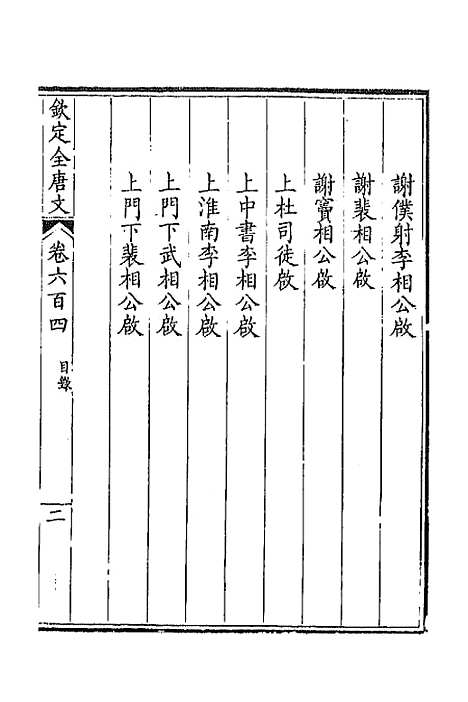 謝僕射李相公啟
謝裴相公啟
謝竇相公啟
上杜司徒啟
上中書李相公啟
上淮南李相公啟
上門下武相公啟
上門下裴相公啟
欽定全唐文
卷六百四
目錄
二